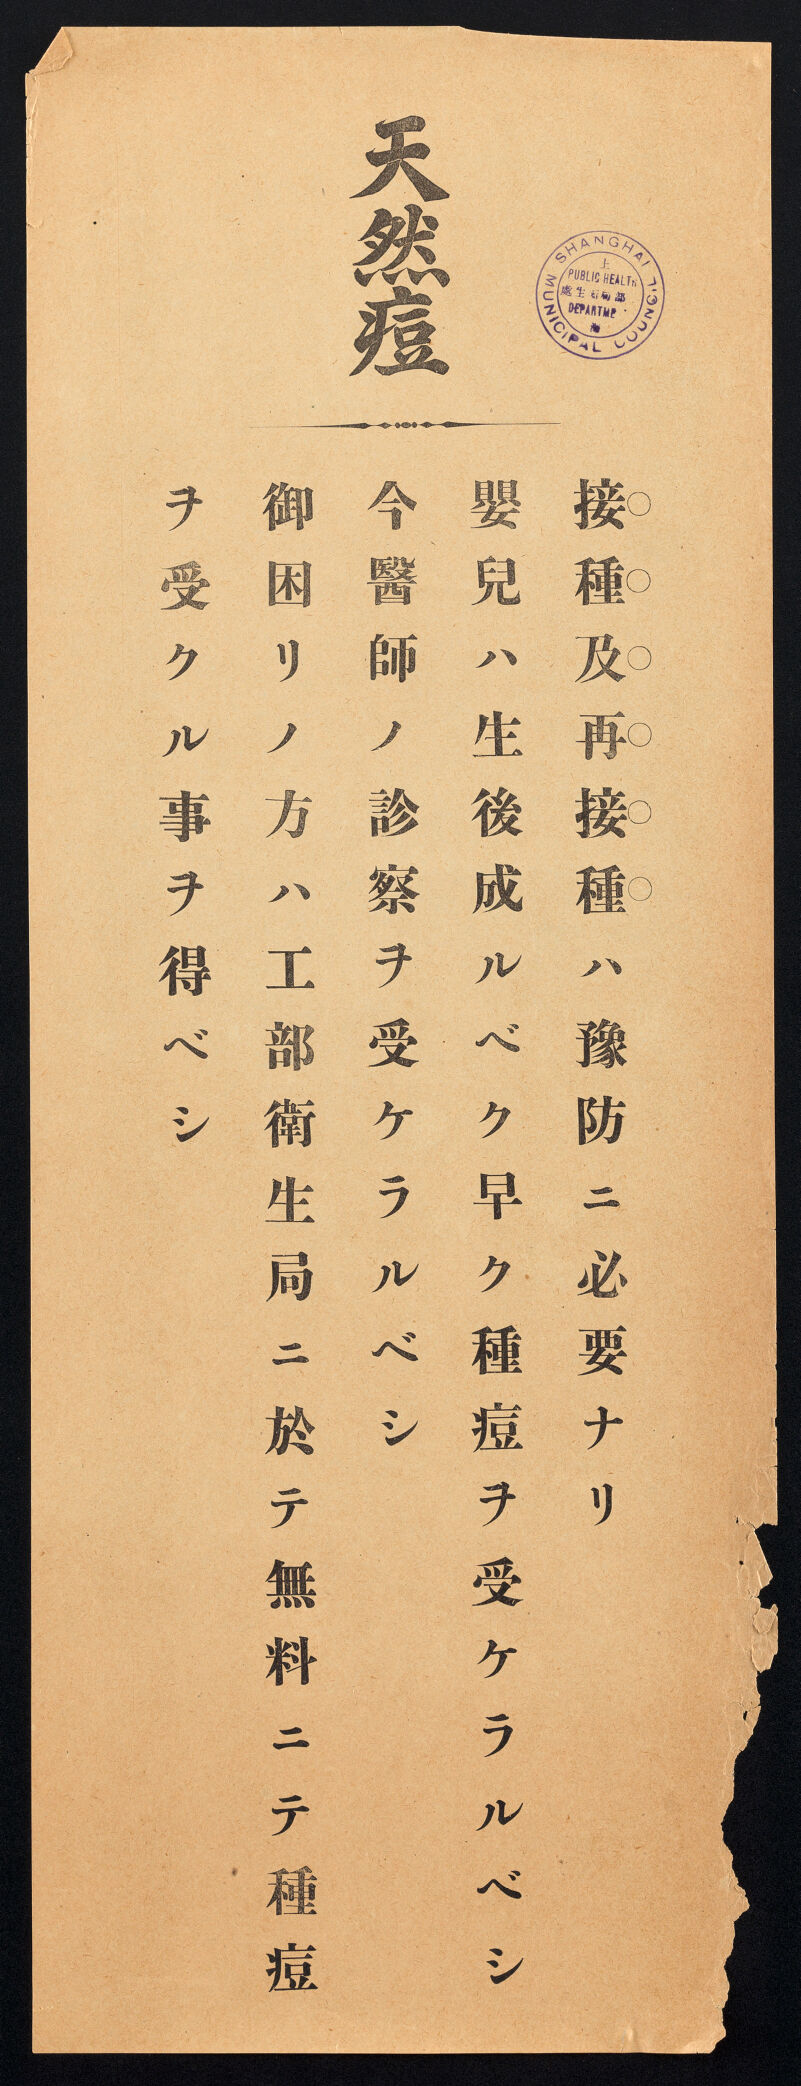 天然痘
SHANGHAI MUNICIPAL COUNCIL
上
PUBLIC HEALTH
處生衛局部
海
接種及再接種ハ豫防ニ必要ナリ
嬰兒ハ生後成ルベク早ク種痘ヲ受ケラルベシ
今醫師ノ診察ヲ受ケラルベシ
御困リノ方ハ工部衛生局ニ於テ無料ニテ種痘
ヲ受クル事ヲ得ベシ